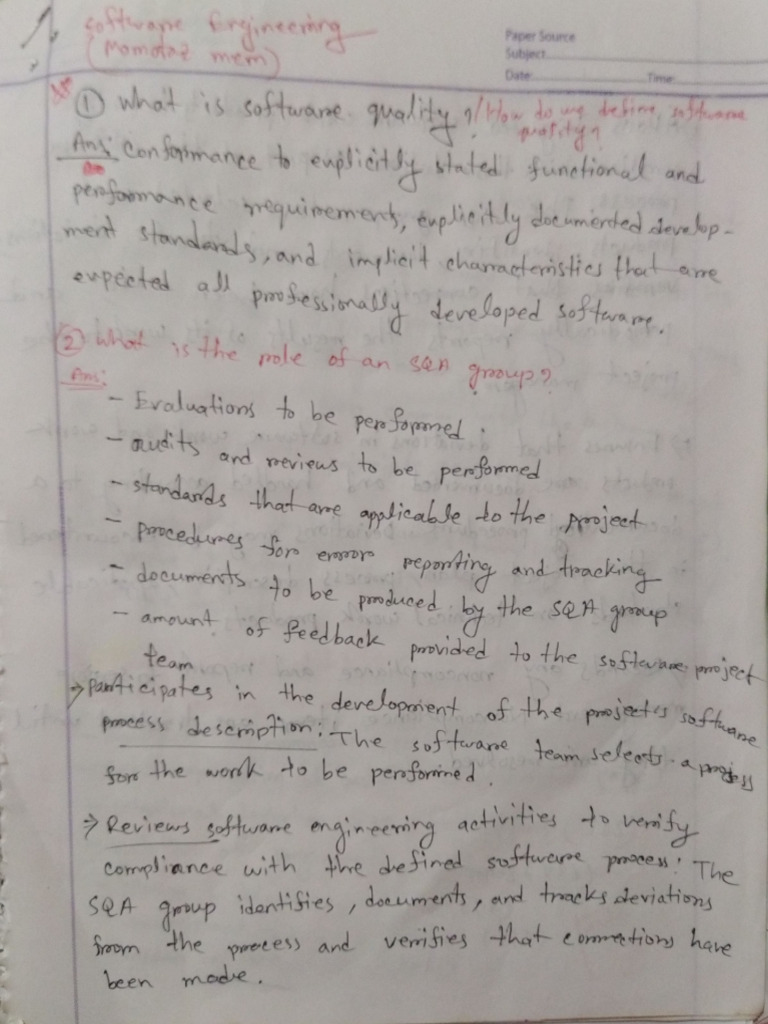 Software Engineering
(Momotaz mem)
Paper Source
Subject
Date Time
① What is software quality?/How do we define software
quality?
Ans: Conformance to explicitly stated functional and
performance requirements, explicitly documented develop-
ment standards, and implicit characteristics that are
expected all professionally developed software.
② What is the role of an SQA group?
Ans:
- Evaluations to be performed.
- audits and reviews to be performed
- standards that are applicable to the project
- procedures for error reporting and tracking
- documents to be produced by the SQA group
- amount of feedback provided to the software project
team
→ Participates in the development of the project's software
process description: The software team selects a process
for the work to be performed.
→ Reviews software engineering activities to verify
compliance with the defined software process: The
SQA group identifies, documents, and tracks deviations
from the process and verifies that corrections have
been made.